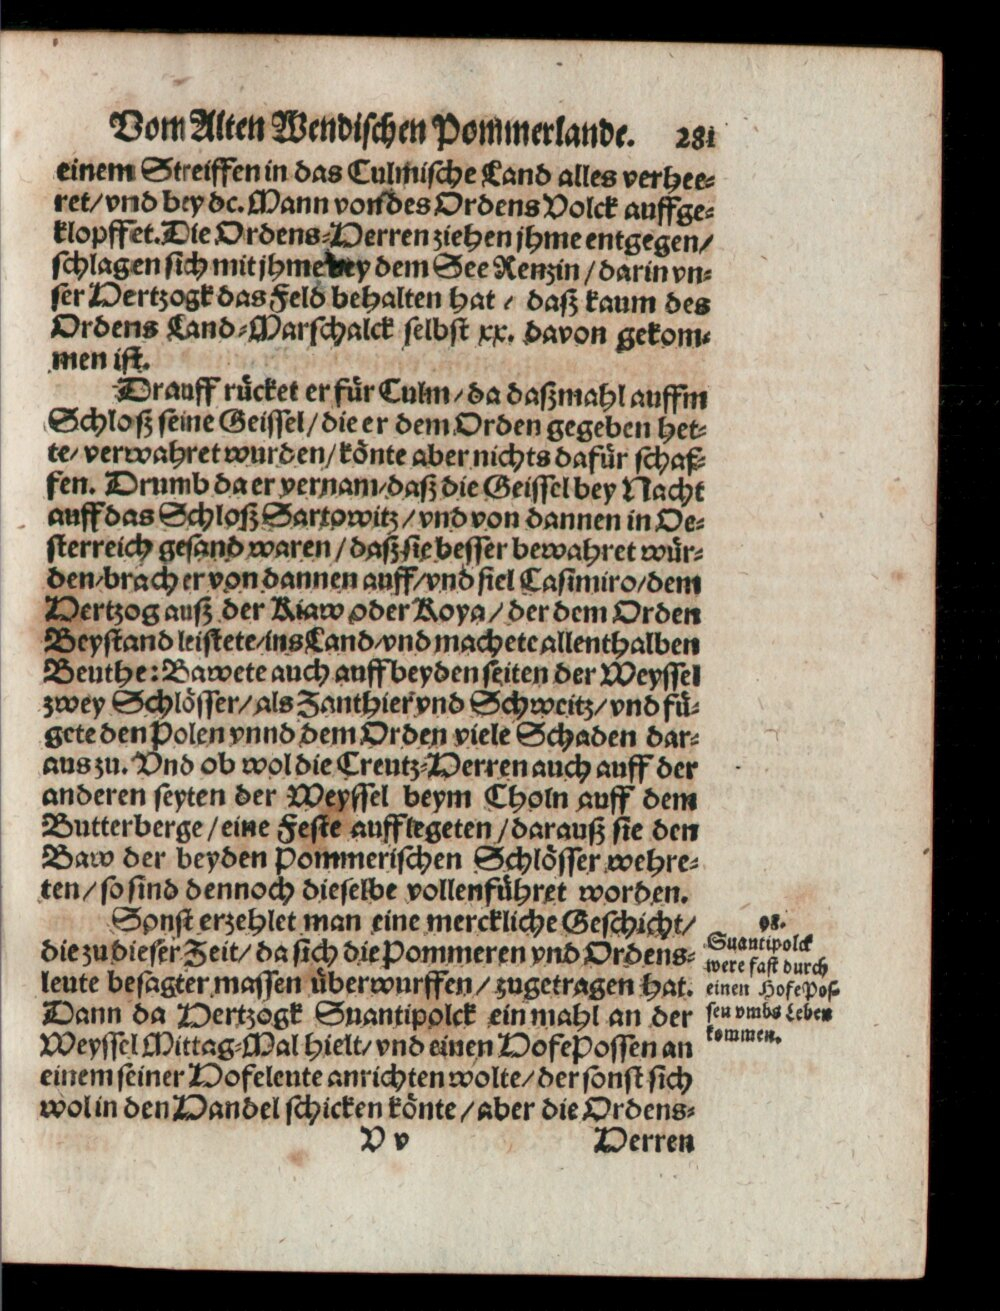 Vom Alten Wendischen Pommerlande. 281
einem Streiffen in das Culmische Land alles verhee-
ret/ vnd bey dc. Mann von des Ordens Volck auffge-
klopffet. Die Ordens-Herren ziehen jhme entgegen/
schlagen sich mit jhme bey dem See Renzin / darin vn-
ser Hertzogk das Feld behalten hat / daß kaum des
Ordens Land-Marschalck selbst xx. davon gekom-
men ist.
Drauff rücket er für Culm / da daßmahl auffm
Schloß seine Geissel / die er dem Orden gegeben het-
te/ verwahret wurden/ könte aber nichts dafür schaf-
fen. Drumb da er vernam/ daß die Geissel bey Nacht
auff das Schloß Sartowitz / vnd von dannen in Oe-
sterreich gesand waren / daß sie besser bewahret wür-
den/ brach er von dannen auff/ vnd fiel Casimiro/ dem
Hertzog auß der Kiaw oder Koya / der dem Orden
Beystand leistete/ ins Land/ vnd machete allenthalben
Beuthe: Bawete auch auff beyden seiten der Weyssel
zwey Schlösser/ als Zanthier vnd Schweitz/ vnd fü-
gete den Polen vnnd dem Orden viele Schaden dar-
aus zu. Vnd ob wol die Creutz-Herren auch auff der
anderen seyten der Weyssel beym Choln auff dem
Butterberge / eine Feste aufflegeten / darauß sie den
Baw der beyden Pommerischen Schlösser wehre-
ten / so sind dennoch dieselbe vollenführet worden.
Sonst erzehlet man eine merckliche Geschicht/
die zu dieser Zeit/ da sich die Pommeren vnd Ordens-
leute besagter massen überwurffen / zugetragen hat.
Dann da Hertzogk Suantipolck ein mahl an der
Weyssel Mittag-Mal hielt/ vnd einen HofePossen an
einem seiner Hofeleute anrichten wolte/ der sonst sich
wol in den Handel schicken könte / aber die Ordens-
V v Herren
98.
Suantipolck
were fast durch
einen HofePos-
sen vmbs Leben
kommen.